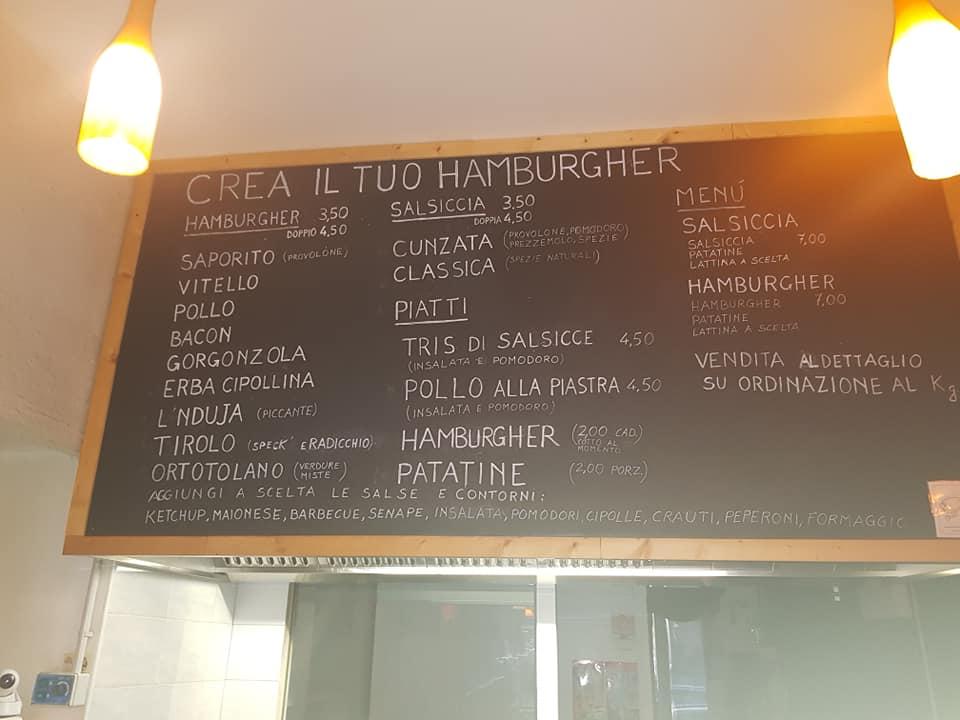 CREA IL TUO HAMBURGHER
HAMBURGHER 3,50
DOPPIO 4,50
SAPORITO (PROVOLONE)
VITELLO
POLLO
BACON
GORGONZOLA
ERBA CIPOLLINA
L'NDUJA (PICCANTE)
TIROLO (SPECK E RADICCHIO)
ORTOTOLANO (VERDURE MISTE)
SALSICCIA 3,50
DOPPIA 4,50
CUNZATA (PROVOLONE, POMODORO)
PREZZEMOLO, SPEZIE)
CLASSICA (SPEZIE NATURALI)
PIATTI
TRIS DI SALSICCE 4,50
(INSALATA E POMODORO)
POLLO ALLA PIASTRA 4,50
(INSALATA E POMODORO)
HAMBURGHER (2,00 CAD.)
COTTO AL
MOMENTO
PATATINE (2,00 PORZ.)
MENÚ
SALSICCIA
SALSICCIA 7,00
PATATINE
LATTINA A SCELTA
HAMBURGHER
HAMBURGHER 7,00
PATATINE
LATTINA A SCELTA
VENDITA AL DETTAGLIO
SU ORDINAZIONE AL Kg
AGGIUNGI A SCELTA LE SALSE E CONTORNI:
KETCHUP, MAIONESE, BARBECUE, SENAPE, INSALATA, POMODORI, CIPOLLE, CRAUTI, PEPERONI, FORMAGGIO